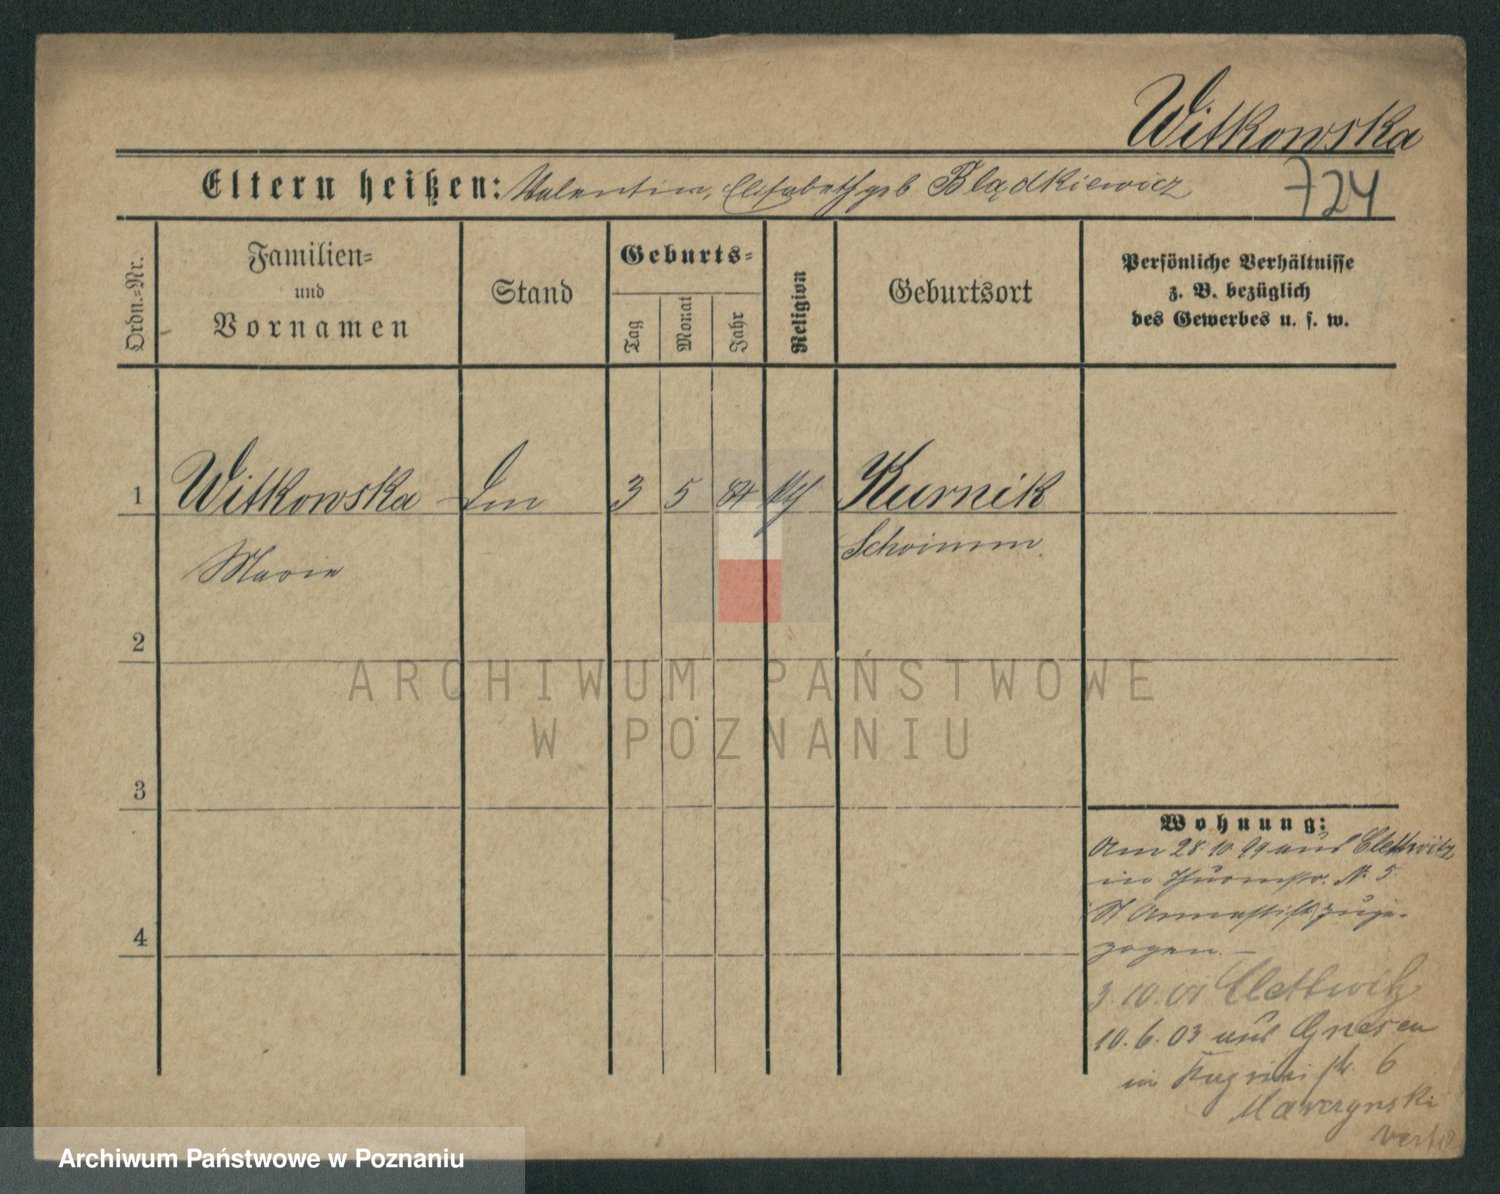 Witkowska
Eltern heißen: Valentin, Elisabeth geb. Blądkiewicz
724
Ordn.-Nr.
Familien-
und
Vornamen
Stand
Geburts-
Tag
Monat
Jahr
Religion
Geburtsort
Persönliche Verhältnisse
z. B. bezüglich
des Gewerbes u. s. w.
1 Witkowska 3 5 84 Kurnik
Marie Schrimm.
2
3
4
Wohnung:
Am 28.10.99 aus
in Thurmstr. N. 5
St Annastift zuge-
zogen. –
3.10.01
10.6.03 aus Gnesen
in str. 6
verte
ARCHIWUM PAŃSTWOWE
W POZNANIU
Archiwum Państwowe w Poznaniu